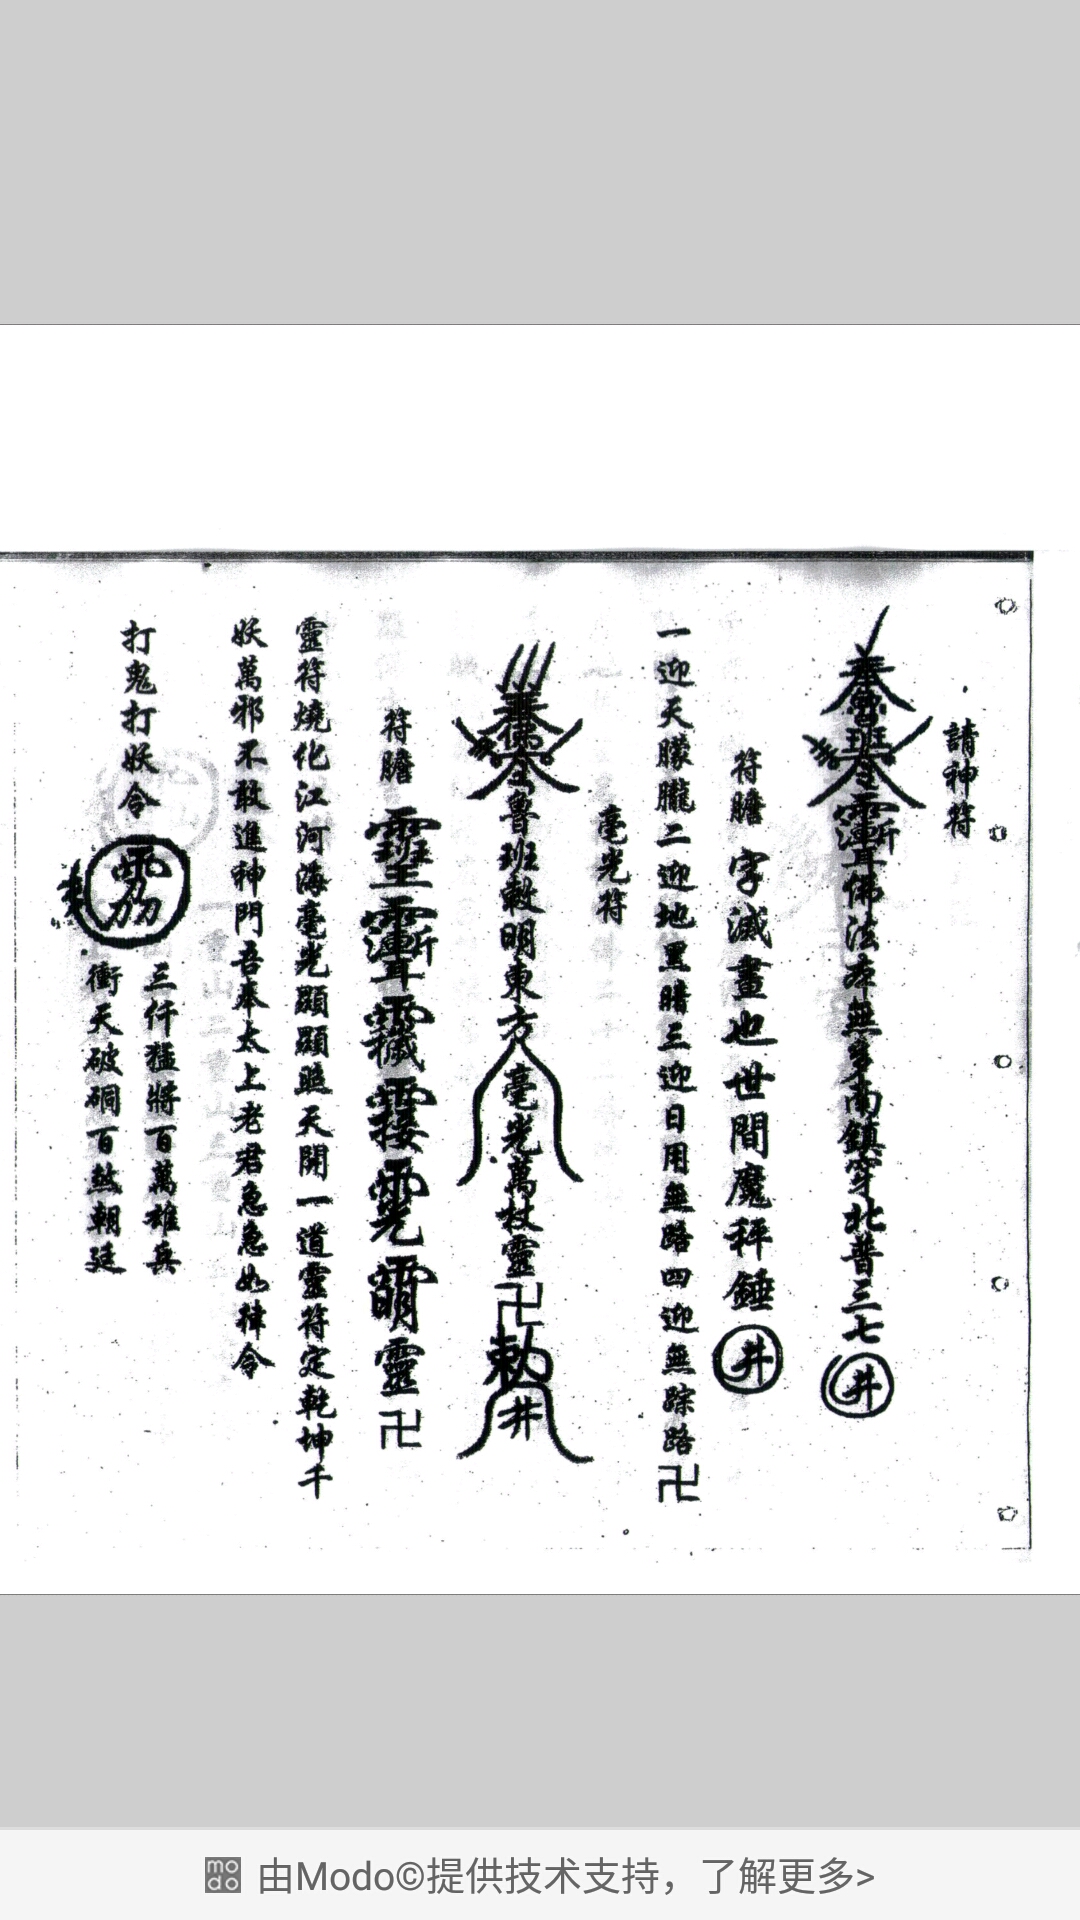 請神符
奉魯班令佛法本無多南鎮穿北普三七井
符膽 字滅畫也世間魔秤錘井
一迎天朦朧二迎地黑暗三迎日用無路四迎無踪路卍
毫光符
奉佛令魯班敕明東方毫光萬杖靈卍勅井
符膽 靈卍
靈符燒化江河海毫光顯顯照天開一道靈符定乾坤千
妖萬邪不敢進神門吾奉太上老君急急如律令
打鬼打妖令
三仟猛將百萬雄兵
衝天破硐百煞朝廷
由Modo©提供技术支持，了解更多>